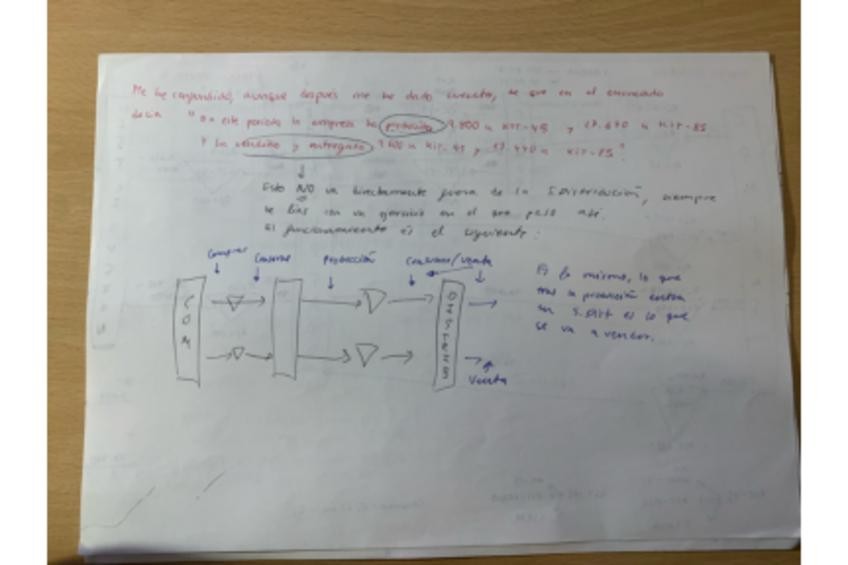 Me he confundido, aunque después me he dado cuenta, de que en el enunciado
decía "En este periodo la empresa ha producido 9.800 u KIT-45 y 17.670 u KIT-85
Y ha vendido y entregado u KIT-45 y 17.440 u KIT-85".
Esto NO va directamente fuera de la S.Distribución, siempre
te lías con un ejercicio en el que pasa
El funcionamiento es el siguiente:
Compras Consumo Producción Consumo/Venta
COM
DISTRIB
Es lo mismo, lo que
tras la producción entra
en S.Dist es lo que
se va a vender.
Venta